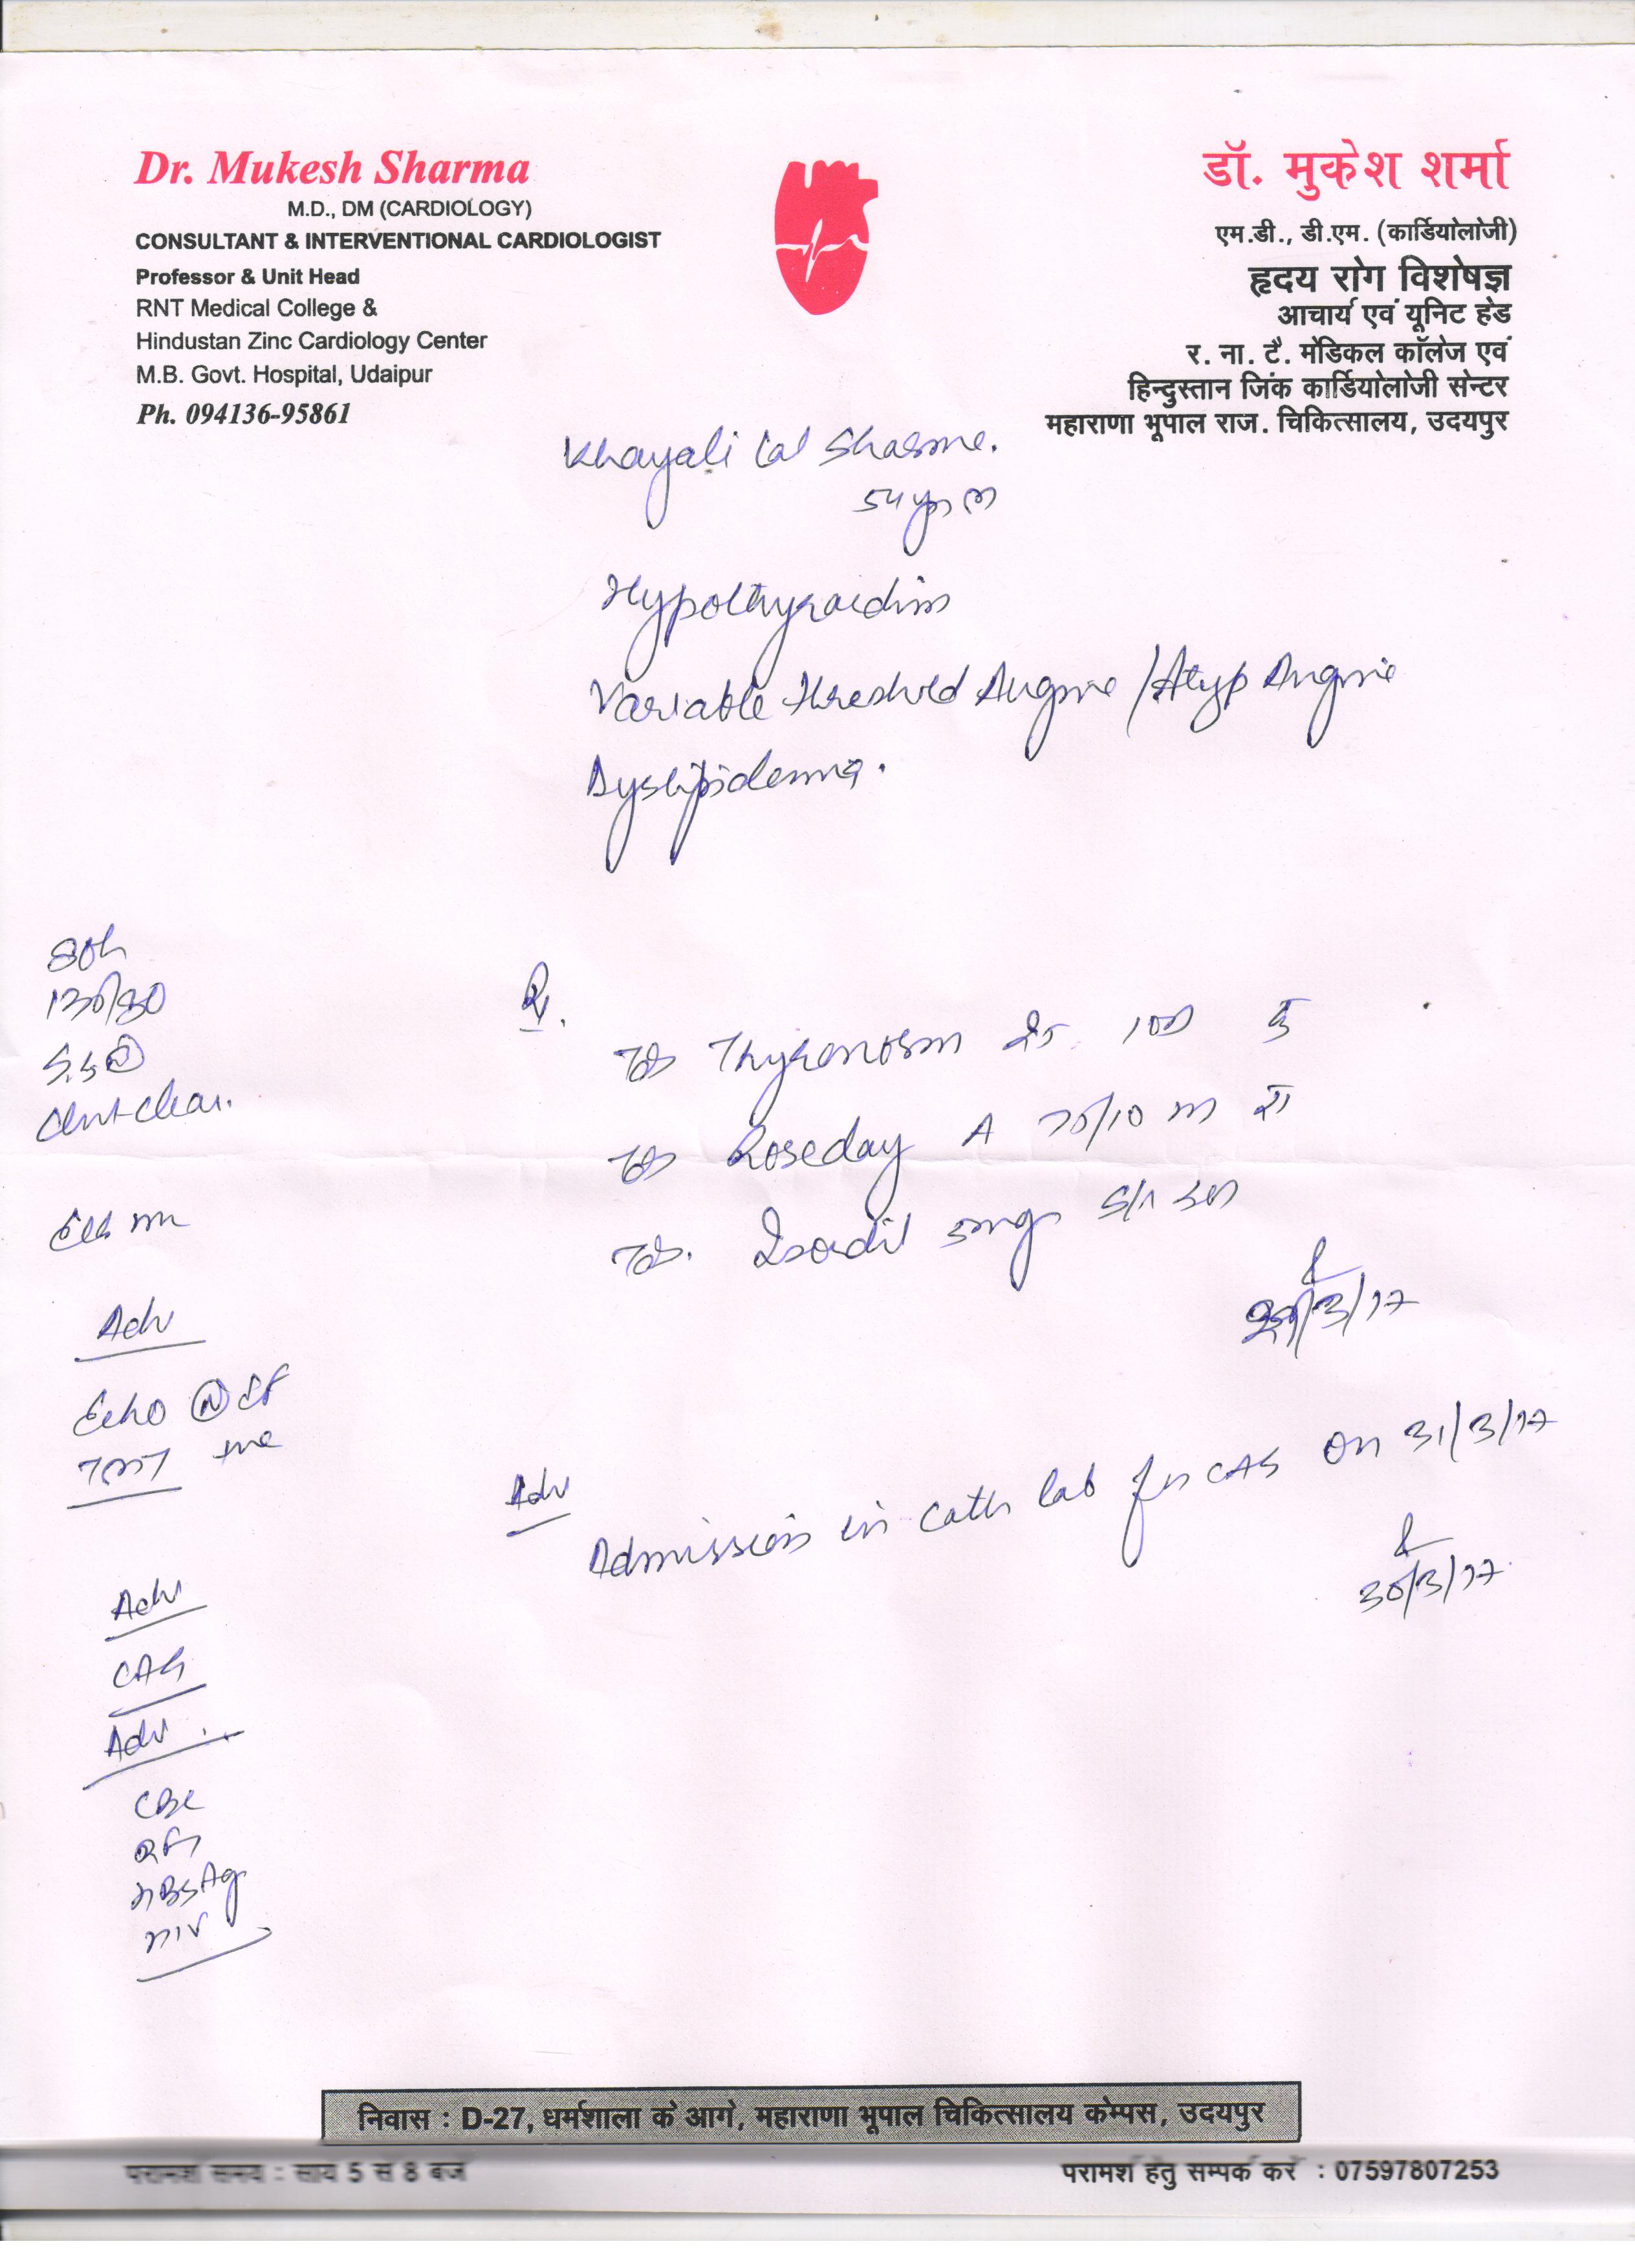 Dr. Mukesh Sharma
M.D., DM (CARDIOLOGY)
CONSULTANT & INTERVENTIONAL CARDIOLOGIST
Professor & Unit Head
RNT Medical College &
Hindustan Zinc Cardiology Center
M.B. Govt. Hospital, Udaipur
Ph. 094136-95861
डॉ. मुकेश शर्मा
एम.डी., डी.एम. (कार्डियोलोजी)
हृदय रोग विशेषज्ञ
आचार्य एवं यूनिट हेड
र. ना. टै. मेडिकल कॉलेज एवं
हिन्दुस्तान जिंक कार्डियोलोजी सेन्टर
महाराणा भूपाल राज. चिकित्सालय, उदयपुर
Khayali Lal Sharma.
54 yrs m
Hypothyroidism
Variable threshold Angina / Atyp Angina
Dyslipidemia.
130/80
Chest clear.
R.
Tab Thyronorm 100
Tab Roseday A 75/10 m
Tab. Isordil 5mg S/L
29/3/17
Adv
Echo N EF
TMT +ve
Adv
Admission in Cath lab for CAG on 31/3/17
30/3/17
Adv
CAG
Adv
CBC
RFT
HBsAg
HIV
निवास : D-27, धर्मशाला के आगे, महाराणा भूपाल चिकित्सालय केम्पस, उदयपुर
परामर्श समय : सायं 5 से 8 बजे
परामर्श हेतु सम्पर्क करें : 07597807253